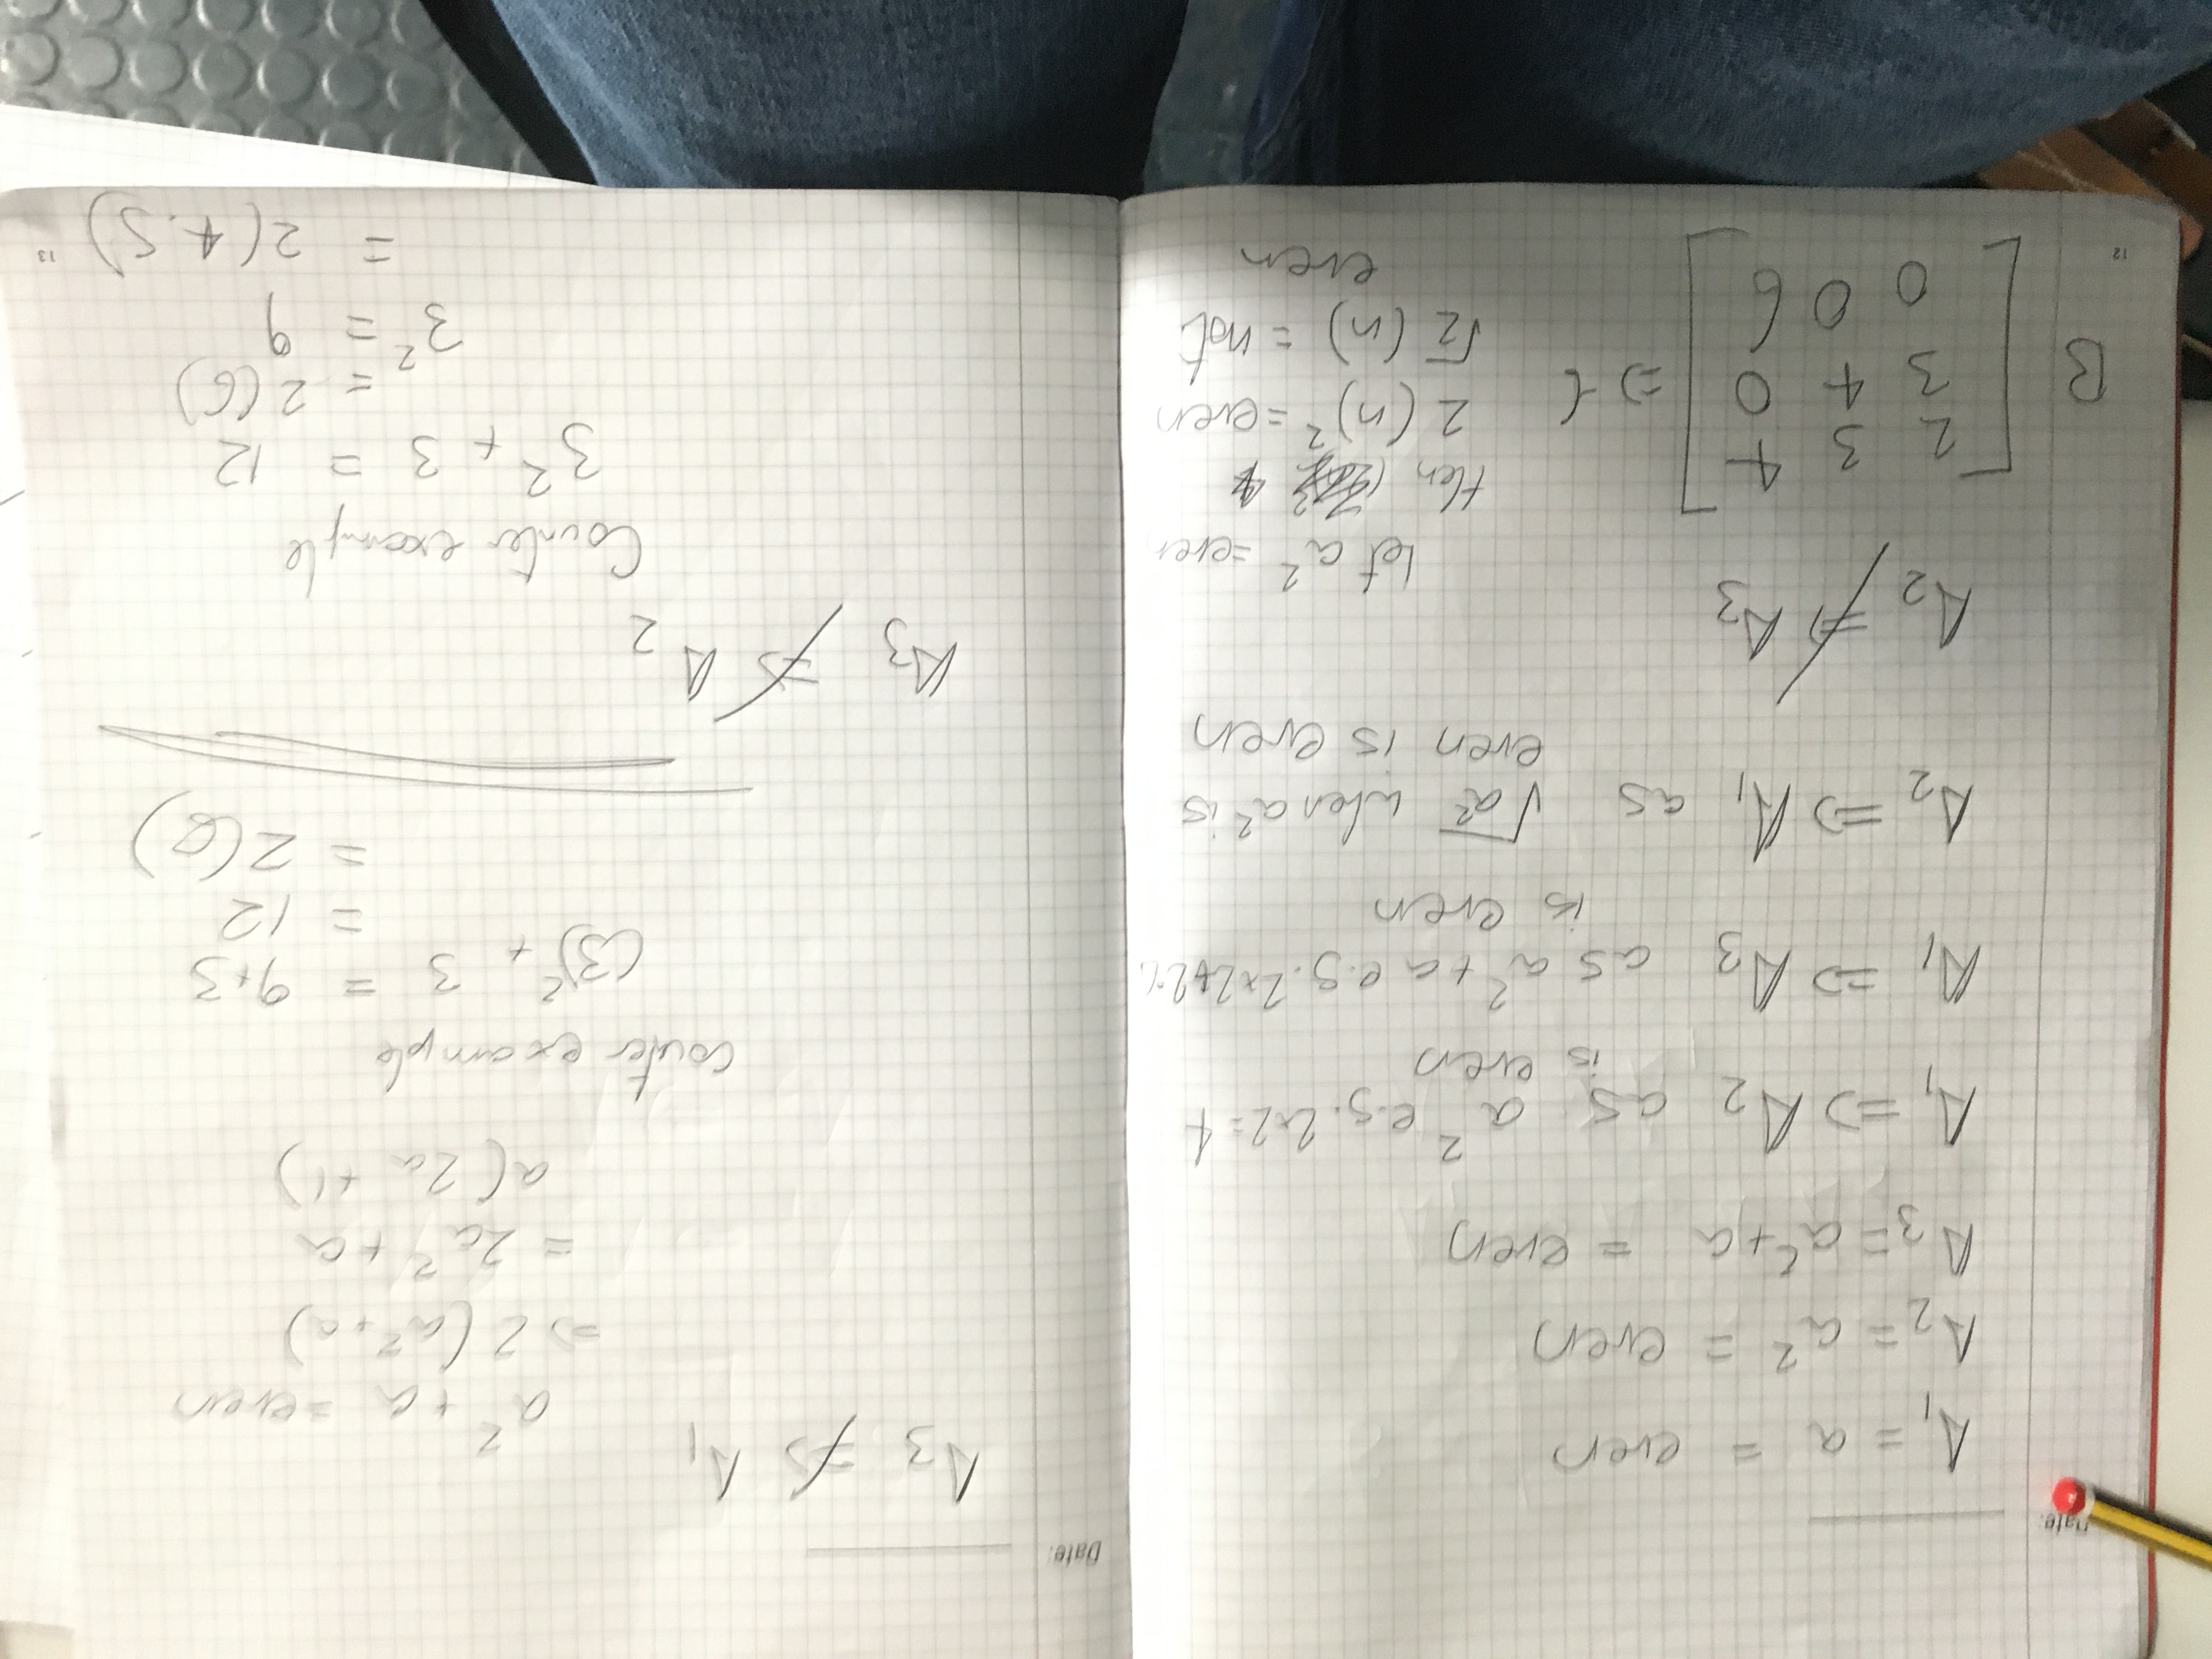 Date:
A₁ = a = even
A₂ = a² = even
A₃ = a² + a = even
A₁ => A₂ as a² e.g. 2x2=4
is even
A₁ => A₃ as a² + a e.g. 2x2+2
is even
A₂ => A₁ as √a² when a² is
even is even
A₂ ≠> A₃
Let a² = even
then
2(n)² = even
√2(n) = not
even
B [ 2 3 4
3 4 0
0 0 6 ] =>
12
Date:
A₃ ≠> A₁
a² + a = even
=> 2(a² + a)
= 2a² + a
a(2a + 1)
counter example
(3)² + 3 = 9+3
= 12
= 2(6)
A₃ ≠> A₂
Counter example
3² + 3 = 12
= 2(6)
3² = 9
= 2(4.5)
13